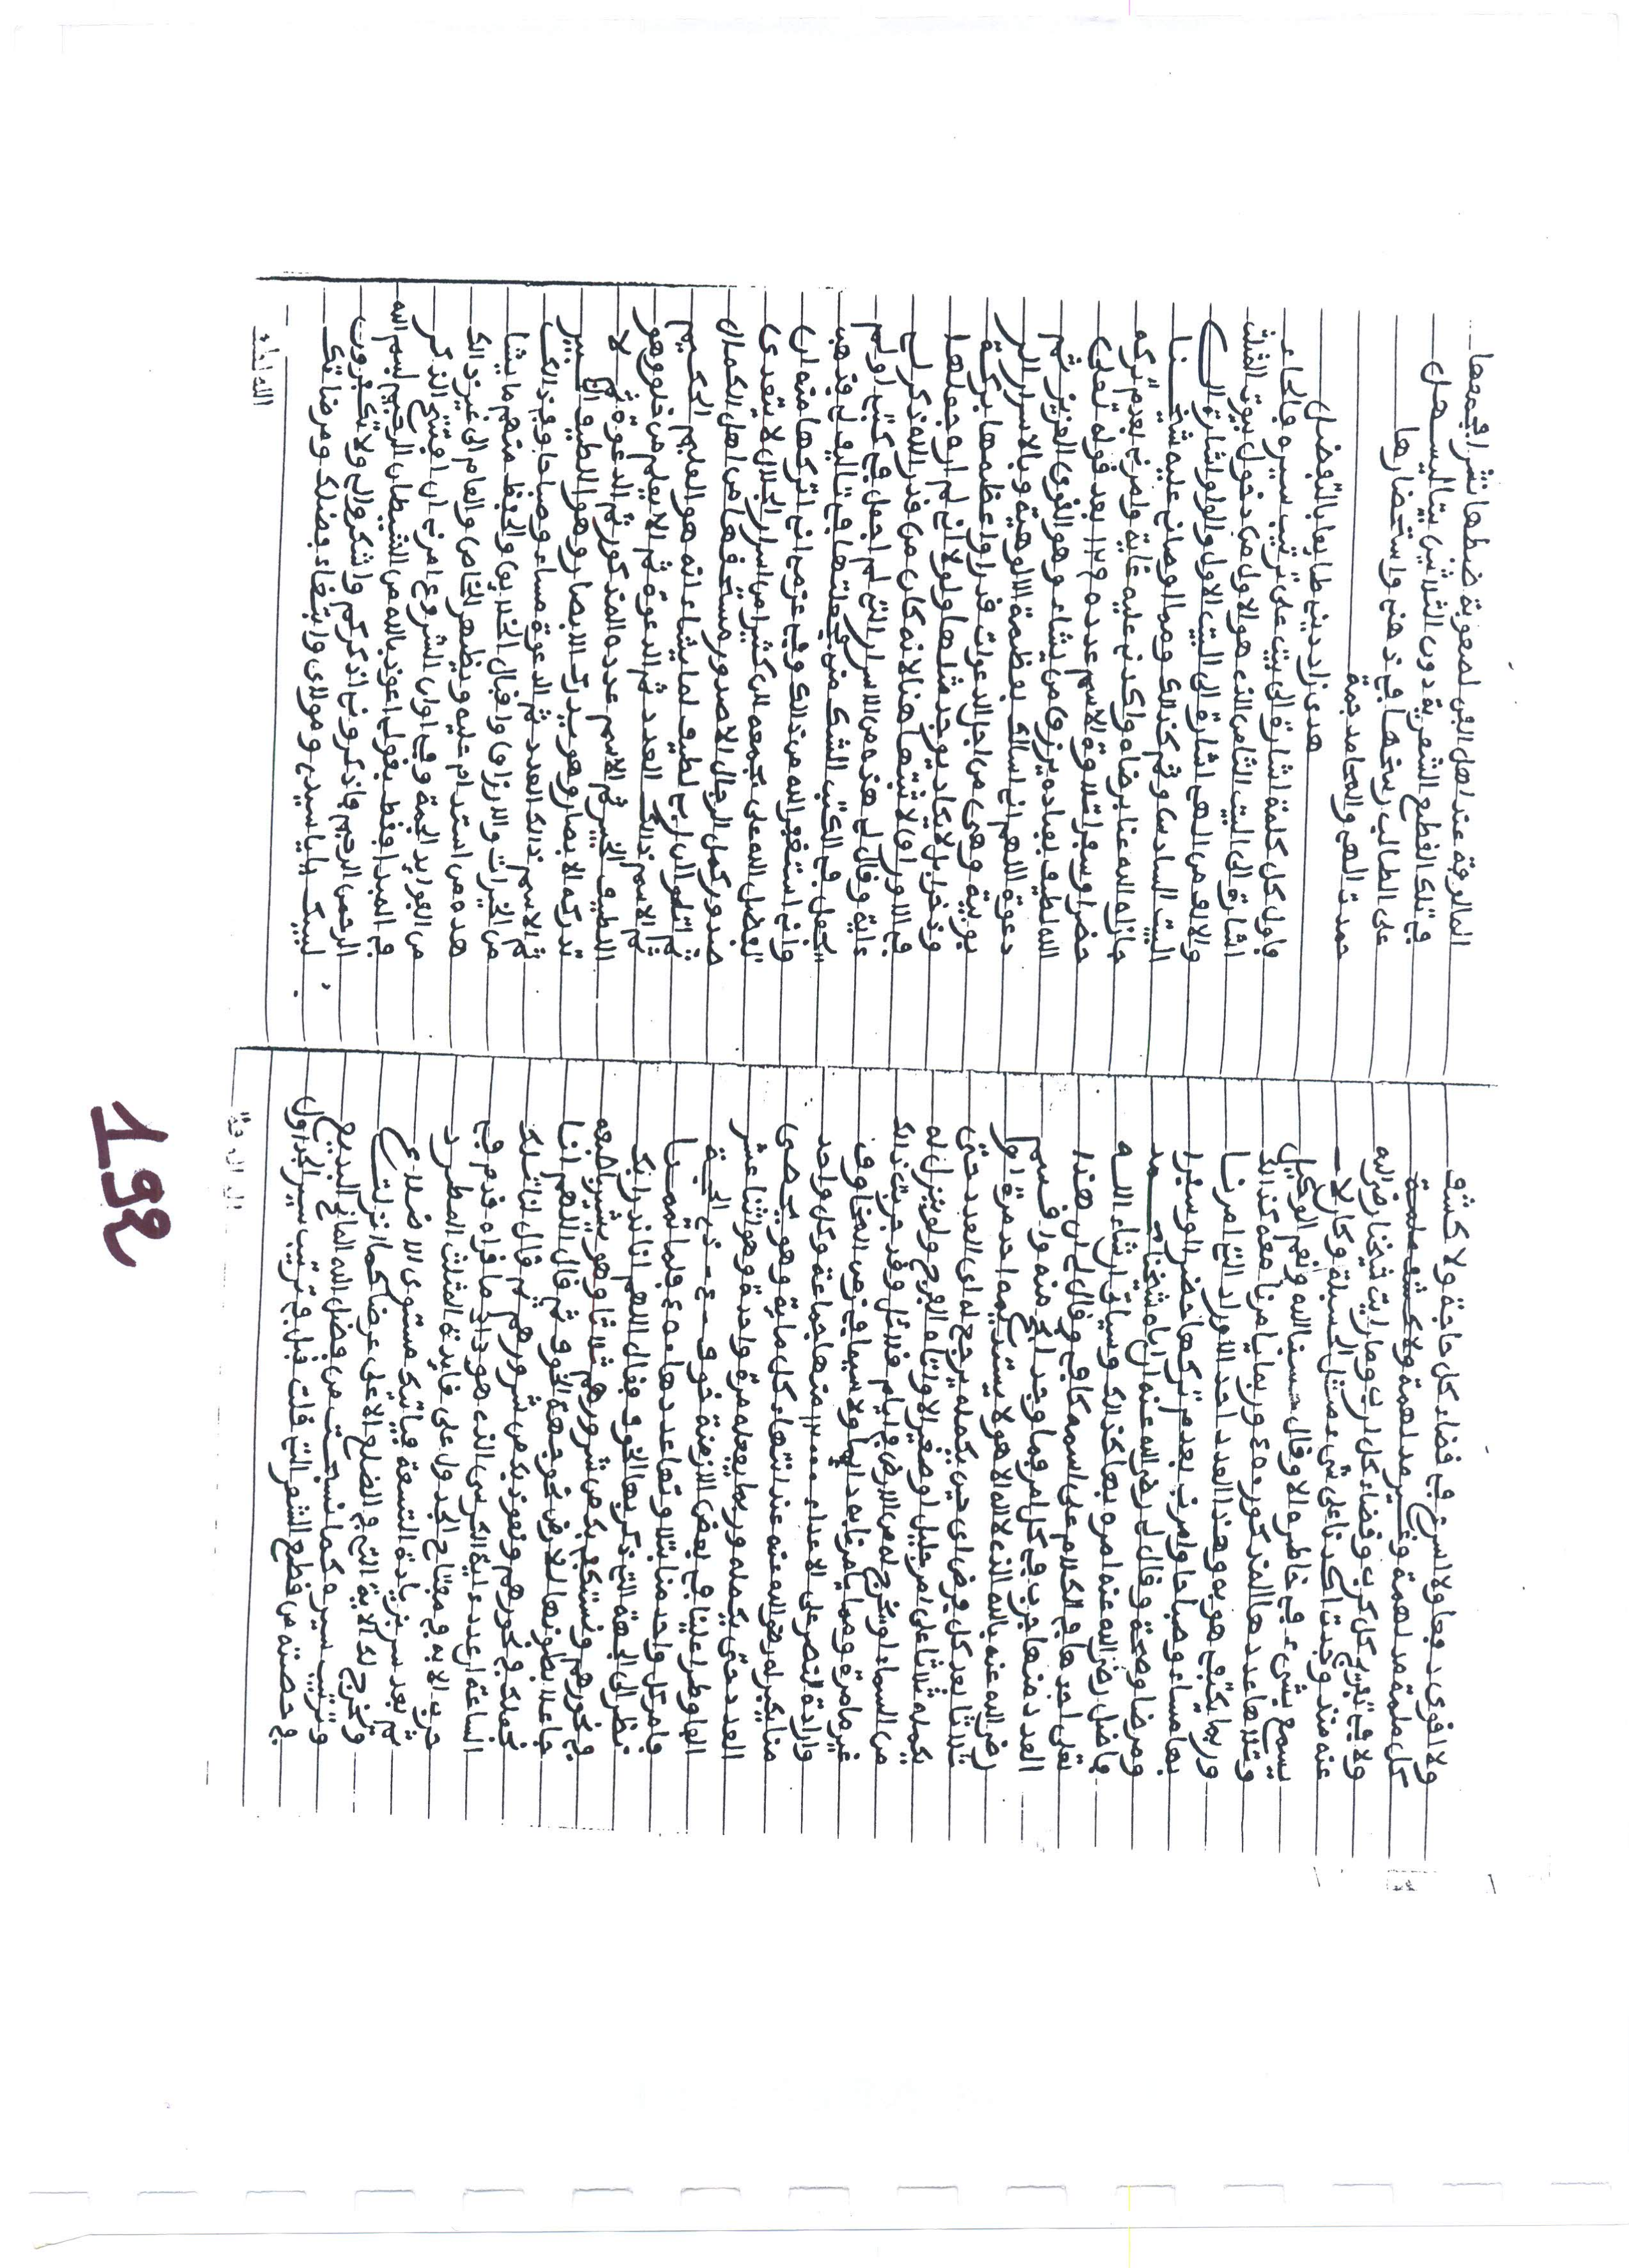 ولا اقوى دفعا ولا اسرع في قضاء كل حاجة ولا كشف
كل ملمة مدلهمة ولا كشف ملمة
ولا في تفريج كل كرب وقضاء كل ارب وما رايت شيخنا رضي الله
عنه منذ وجدت على شيء مثل الحسبلة وكان لا
يسمع بشيء في خاطره الا وقال حسبنا الله ونعم الوكيل
وتلاها عددها المذكور وربما يامرنا معه كذالك
وربما يكتفي هو به وهذا العدد احد الاوراد التي امرنا
بها مساء وصباحا وامرني بعدم تركها حضرا وسفرا
ومرضا وصحة وقال لي رضي الله عنه ان اباه شيخنا محمد
فاضل رضي الله عنه امره بها كذالك وسياتي ان شاء الله
تعلى اخذها في الكلام على اسمه كافي وقال لي ان هذا
العدد منها جرب في كل امر فما وجد انجح منه واقسم
رضي الله عنه بالله الذي لا اله الا هو لا يستديمه احد مرة او
ثلاثا بعد كل فرض اي حين يكمله يرجع له اي العدد حتى
يكمله ثلاثا على امر جليل او صغير الا واتاه الفرج ولو ينزل له
من السماء او يخرج له من الارض في ايام قلائل وقد جربت ذالك
غير ما مرة ومما يامر نابه دايما ولا سيما في زمن المخاوف
وارادة النصر على الاعداء منها جماعة وكل واحد
منا يكبر له رضي الله عنه عند انتهاء كل ماية وهو يحصي
العدد حتى يكمله وربما يفعله مرة واحدة وهو اثنا عشر
الفا وطرا علينا في بعض الازمنة خوف من ذي الجهة
فامر كل واحد منا بتلاوتها عددها 450 فلما اتممنا
نظر الى الجهة التي ذكر بها الخوف فقال اللهم انا ندرا بك
في نحورهم ونستكفي بك من شرورهم ثلاثا وهو يشير باصبعه
جاعلا بطونها للارض نحو جهة الخوف ثم قال اللهم انا
نجعلك في نحورهم ونعوذ بك من شرورهم ثم قال لنا تلك
الساعة ان عدد ءاية الكرسي الذي هو دان ما قراه قدم في
حرب الا به وفي مفتاح الجدول على فايدة المثلث المطرد
ثم بعد سر بزيادة التسعة فياتيك مستوى الاضلاع
وتخرج لك الاية التي في الضلع الاعلى عرضا كما انزلت
وترتيب سيره كما نسجت من فضل الله المانح البديع
في حصته من قطع الشعر التي قلت قبل في ترتيب سير الجداول
المالوفة عند اهل الفن لصعوبة ضبطها نثرا فجمعها
في تلك القطع الشعرية دون الثلاثين بيتا ليسهل
على الطالب رسخها في ذهني واستحضارها
حمدت الهي والمحامد جمة
هدى زاد ديني طايعا بالتفضل
فاول كل كلمة اشارة الى بيت على ترتيب سيره فالحاء
اشارة الى البيت الثامن الذي هو الاول من دخول بيوت المثلث
والالف من الهي اشارة الى البيت الاول والواو اشارة الى
البيت السادس وثم كذالك ومما اوصاني عليه شيخنا
جازاه الله عنا برضاه واكدني عليه غاية وامرني بعدم تركه
حضرا وسفرا تلاوة الاسم عدده 129 بعد قوله تعلى
الله لطيف بعباده يرزق من يشاء وهو القوي العزيز ثم
دعوة اللهم اني اسالك بعظمة الالوهية وبالاسرار الر
بوبية وهي من اجل الدعوات قدرا واعظمها بركة
وذخرا بل لا يكاد يوجد مثلها ولولا اني لم ارد جعلها
في الاوراق لاثبتها هنا لانه كان من قدر الله ذكر لي
ءاية وقال لي هذه من الاسرار التي لم اجعل في كتب ولم
تجعل في الكتب الشك مني فجعلتها في تاليف لي فذهب
واني استغفر الله من ذالك وفي عزمي اني اتركها منه ان
تفضل الله على بجمعه لان كثيرا من اسرار الجلال لا تتعدى
صدور كمل الرجال الا صدور مستحقها من اهل الكمال
ثم اتلو ان ربي لطيف لما يشاء انه هو العليم الحكيم
ثم الاسم ذالك العدد ثم الدعوة ثم الا يعلم من خلق وهو
اللطيف الخبير ثم الاسم عدده المذكور ثم الدعوة ثم لا
تدركه الابصار وهو يدرك الابصار وهو اللطيف الخبير
ثم الاسم ذالك العدد ثم الدعوة مساء وصباحا وفي ذالك
من الخيرات والارزاق واقبال الخلايق والحفظ منهم ما يشا
هده من استدام عليه ويظهر للخاص والعام الى غير ذالك
من الفوايد الجمة وفي اوان الشروع امرني ان افتتح الذكر
في المبدا فقط بقولي اعوذ بالله من الشيطان الرجيم بسم الله
الرحمن الرحيم فاذكروني اذكركم واشكروا لي ولا تكفرون
لبيك يا سيدي ومولاي وابتغاء فضلك ومرضاتك
اللهم لبيك
192